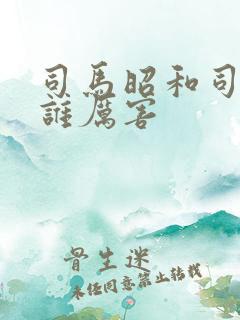 司馬昭和司
誰厲害
骨生迷
未经同意禁止转载